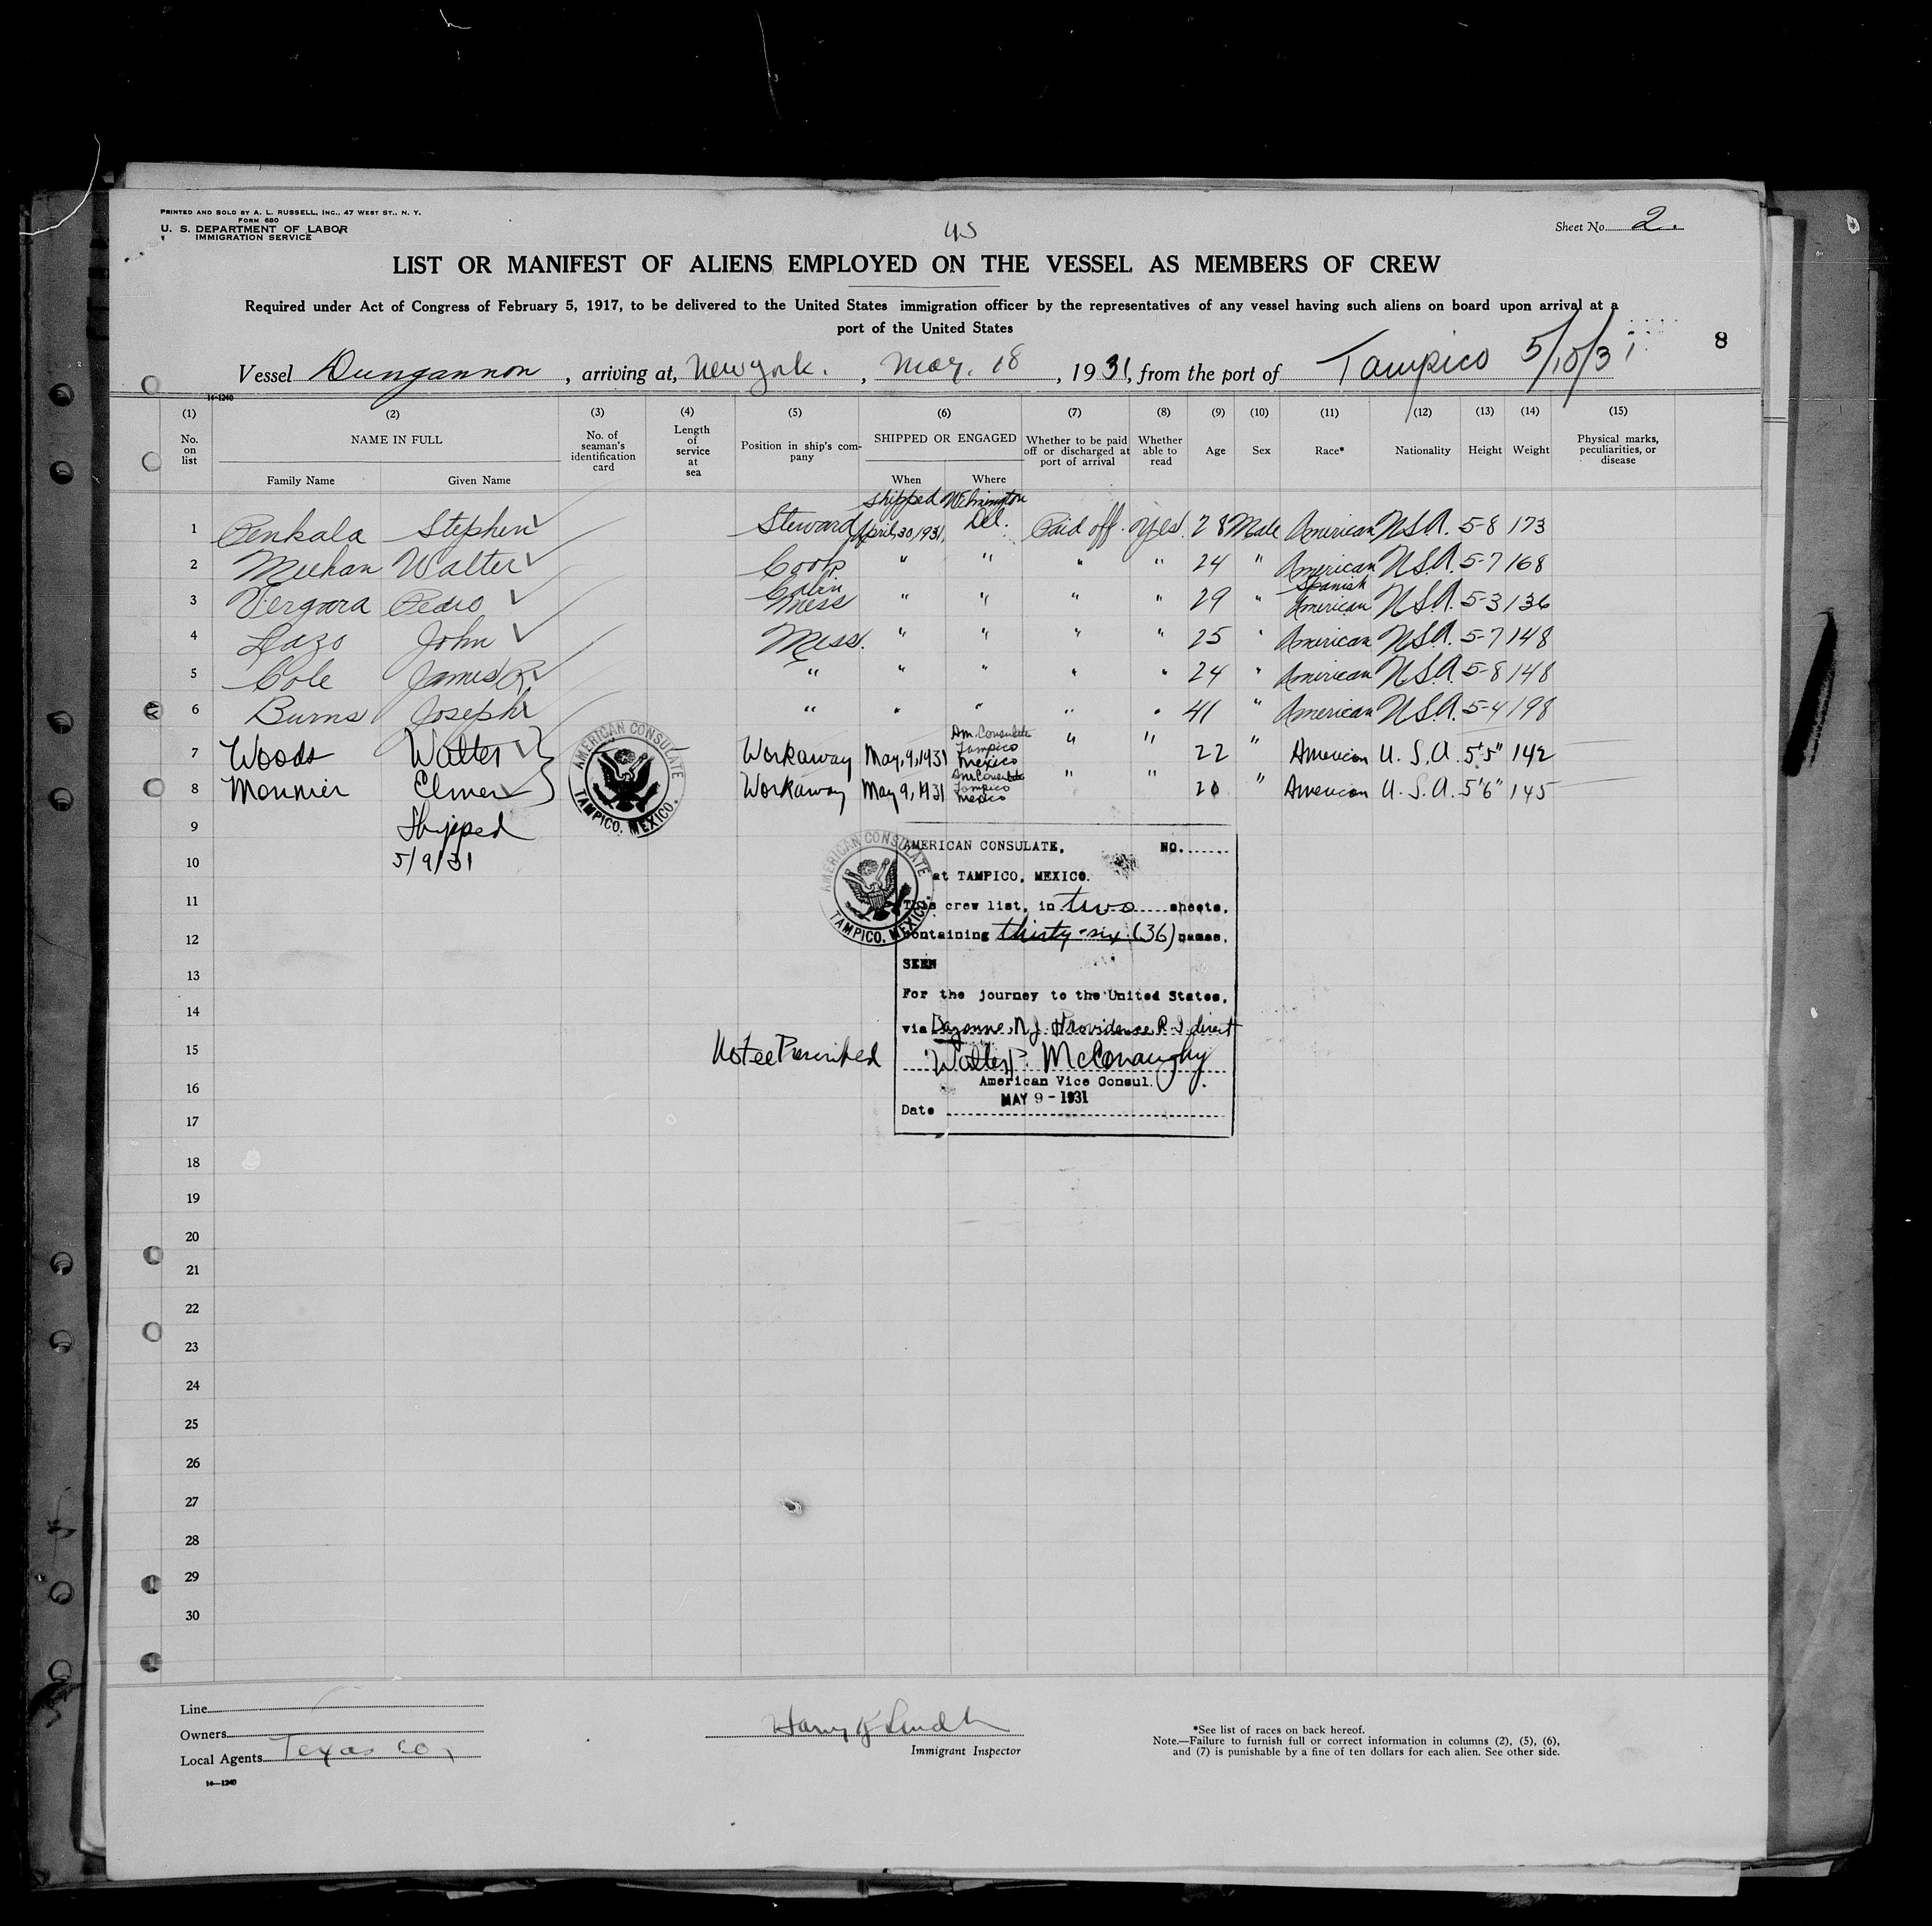 PRINTED AND SOLD BY A. L. RUSSELL, INC., 47 WEST ST., N. Y.
FORM 680
U. S. DEPARTMENT OF LABOR
IMMIGRATION SERVICE
US
Sheet No. 2.
LIST OR MANIFEST OF ALIENS EMPLOYED ON THE VESSEL AS MEMBERS OF CREW
Required under Act of Congress of February 5, 1917, to be delivered to the United States immigration officer by the representatives of any vessel having such aliens on board upon arrival at a
port of the United States
8
Vessel Dungannon, arriving at, New York., May. 18, 1931, from the port of Tampico 5/10/31
14-1240
(1) (2) (3) (4) (5) (6) (7) (8) (9) (10) (11) (12) (13) (14) (15)
No. on list NAME IN FULL No. of seaman's identification card Length of service at sea Position in ship's company SHIPPED OR ENGAGED Whether to be paid off or discharged at port of arrival Whether able to read Age Sex Race* Nationality Height Weight Physical marks, peculiarities, or disease
Family Name Given Name When Where
shipped Wilmington
1 Penkala Stephen Steward April, 30, 1931, Del. Paid off. Yes. 28 Male American U.S.A. 5-8 173
2 Meehan Walter Cook " " " " 24 " American U.S.A. 5-7 168
Cabin Spanish
3 Vergara Pedro Mess " " " " 29 " American U.S.A. 5-3 136
4 Lazo John Mess. " " " " 25 " American U.S.A. 5-7 148
5 Cole James R. " " " " " 24 " American U.S.A. 5-8 148
6 Burns Joseph " " " " " 41 " American U.S.A. 5-4 198
7 Woods Walter Workaway May, 9, 1931 Am. Consulate Tampico Mexico " " 22 " American U. S. A. 5'5" 142
8 Monnier Elmer Workaway May 9, 1931 Am. Consulate Tampico Mexico " " 20 " American U. S. A. 5'6" 145
AMERICAN CONSULATE
TAMPICO, MEXICO.
9 Shipped
10 5/9/31
11
12
13
14
15
16
17
18
19
20
21
22
23
24
25
26
27
28
29
30
AMERICAN CONSULATE
TAMPICO, MEXICO
AMERICAN CONSULATE, NO.
at TAMPICO, MEXICO.
This crew list, in two sheets,
containing thirty-six (36) names.
SEEN
For the journey to the United States,
via Bayonne, N.J. Providence R. I direct
No fee Prescribed
Walter P. McConaughy
American Vice Consul.
MAY 9 - 1931
Date
Line
Owners
Local Agents Texas Co.
14-1240
Harry
Immigrant Inspector
*See list of races on back hereof.
Note.—Failure to furnish full or correct information in columns (2), (5), (6),
and (7) is punishable by a fine of ten dollars for each alien. See other side.